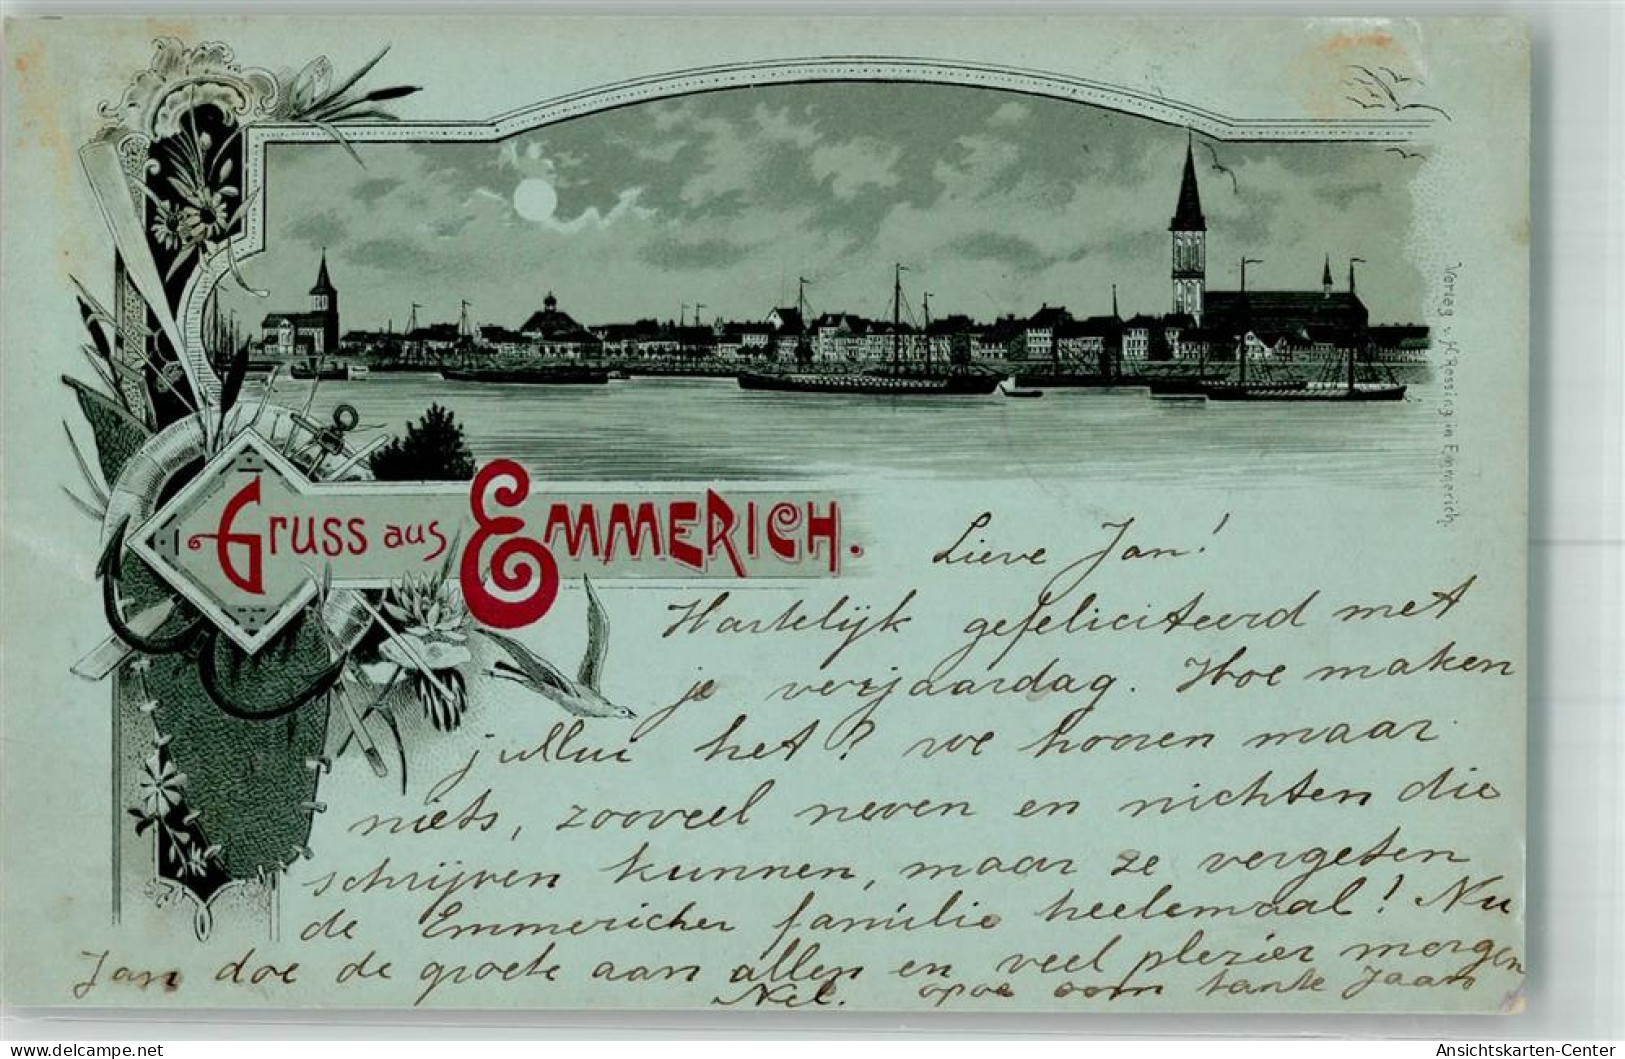 Gruss aus Emmerich.
Verlag v. H. Messing in Emmerich.
Lieve Jan!
Hartelijk gefeliciteerd met
je verjaardag. Hoe maken
jullui het? we hooren maar
niets, zooveel neven en nichten die
schrijven kunnen, maar ze vergeten
de Emmericher familie heelemaal! Nu
Jan doe de groete aan allen en veel plezier morgen
Nel. opoe oom tante Jaan
delcampe.net
Ansichtskarten-Center